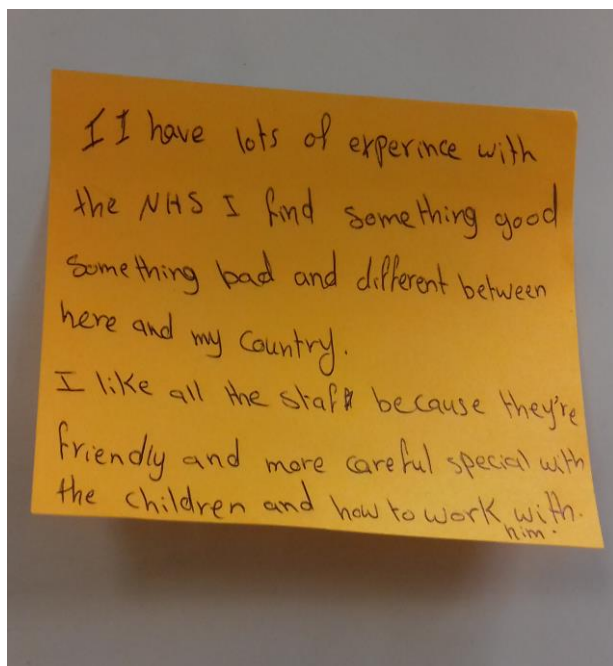 I I have lots of experince with
the NHS I find something good
something bad and different between
here and my country.
I like all the staff because they're
friendly and more careful special with
the children and how to work with.
him.